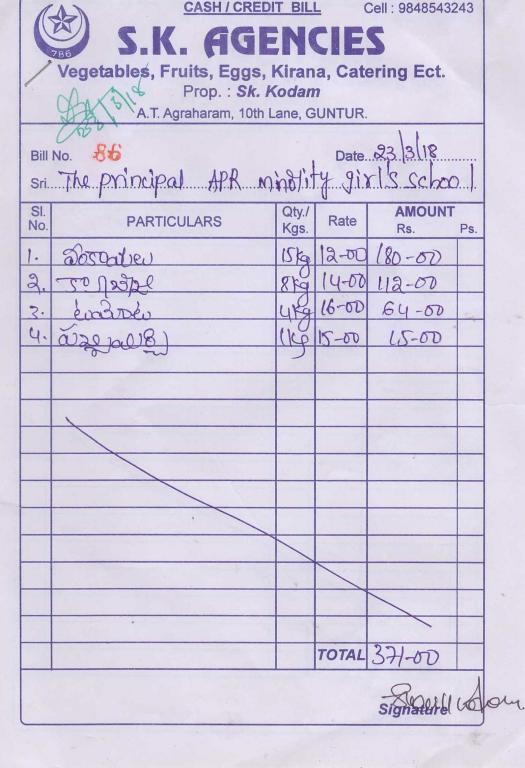 CASH / CREDIT BILL Cell : 9848543243
786
S.K. AGENCIES
Vegetables, Fruits, Eggs, Kirana, Catering Ect.
Prop. : Sk. Kodam
A.T. Agraharam, 10th Lane, GUNTUR.
23/3/18
Bill No. 86 Date 23/3/18
Sri The principal APR minority girl's school
Sl. No. PARTICULARS Qty./ Kgs. Rate AMOUNT Rs. Ps.
1. వంకాయలు 15kg 12-00 180-00
2. 8kg 14-00 112-00
3. టమోటాలు 4kg 16-00 64-00
4. 1kg 15-00 15-00
TOTAL 371-00
Signature